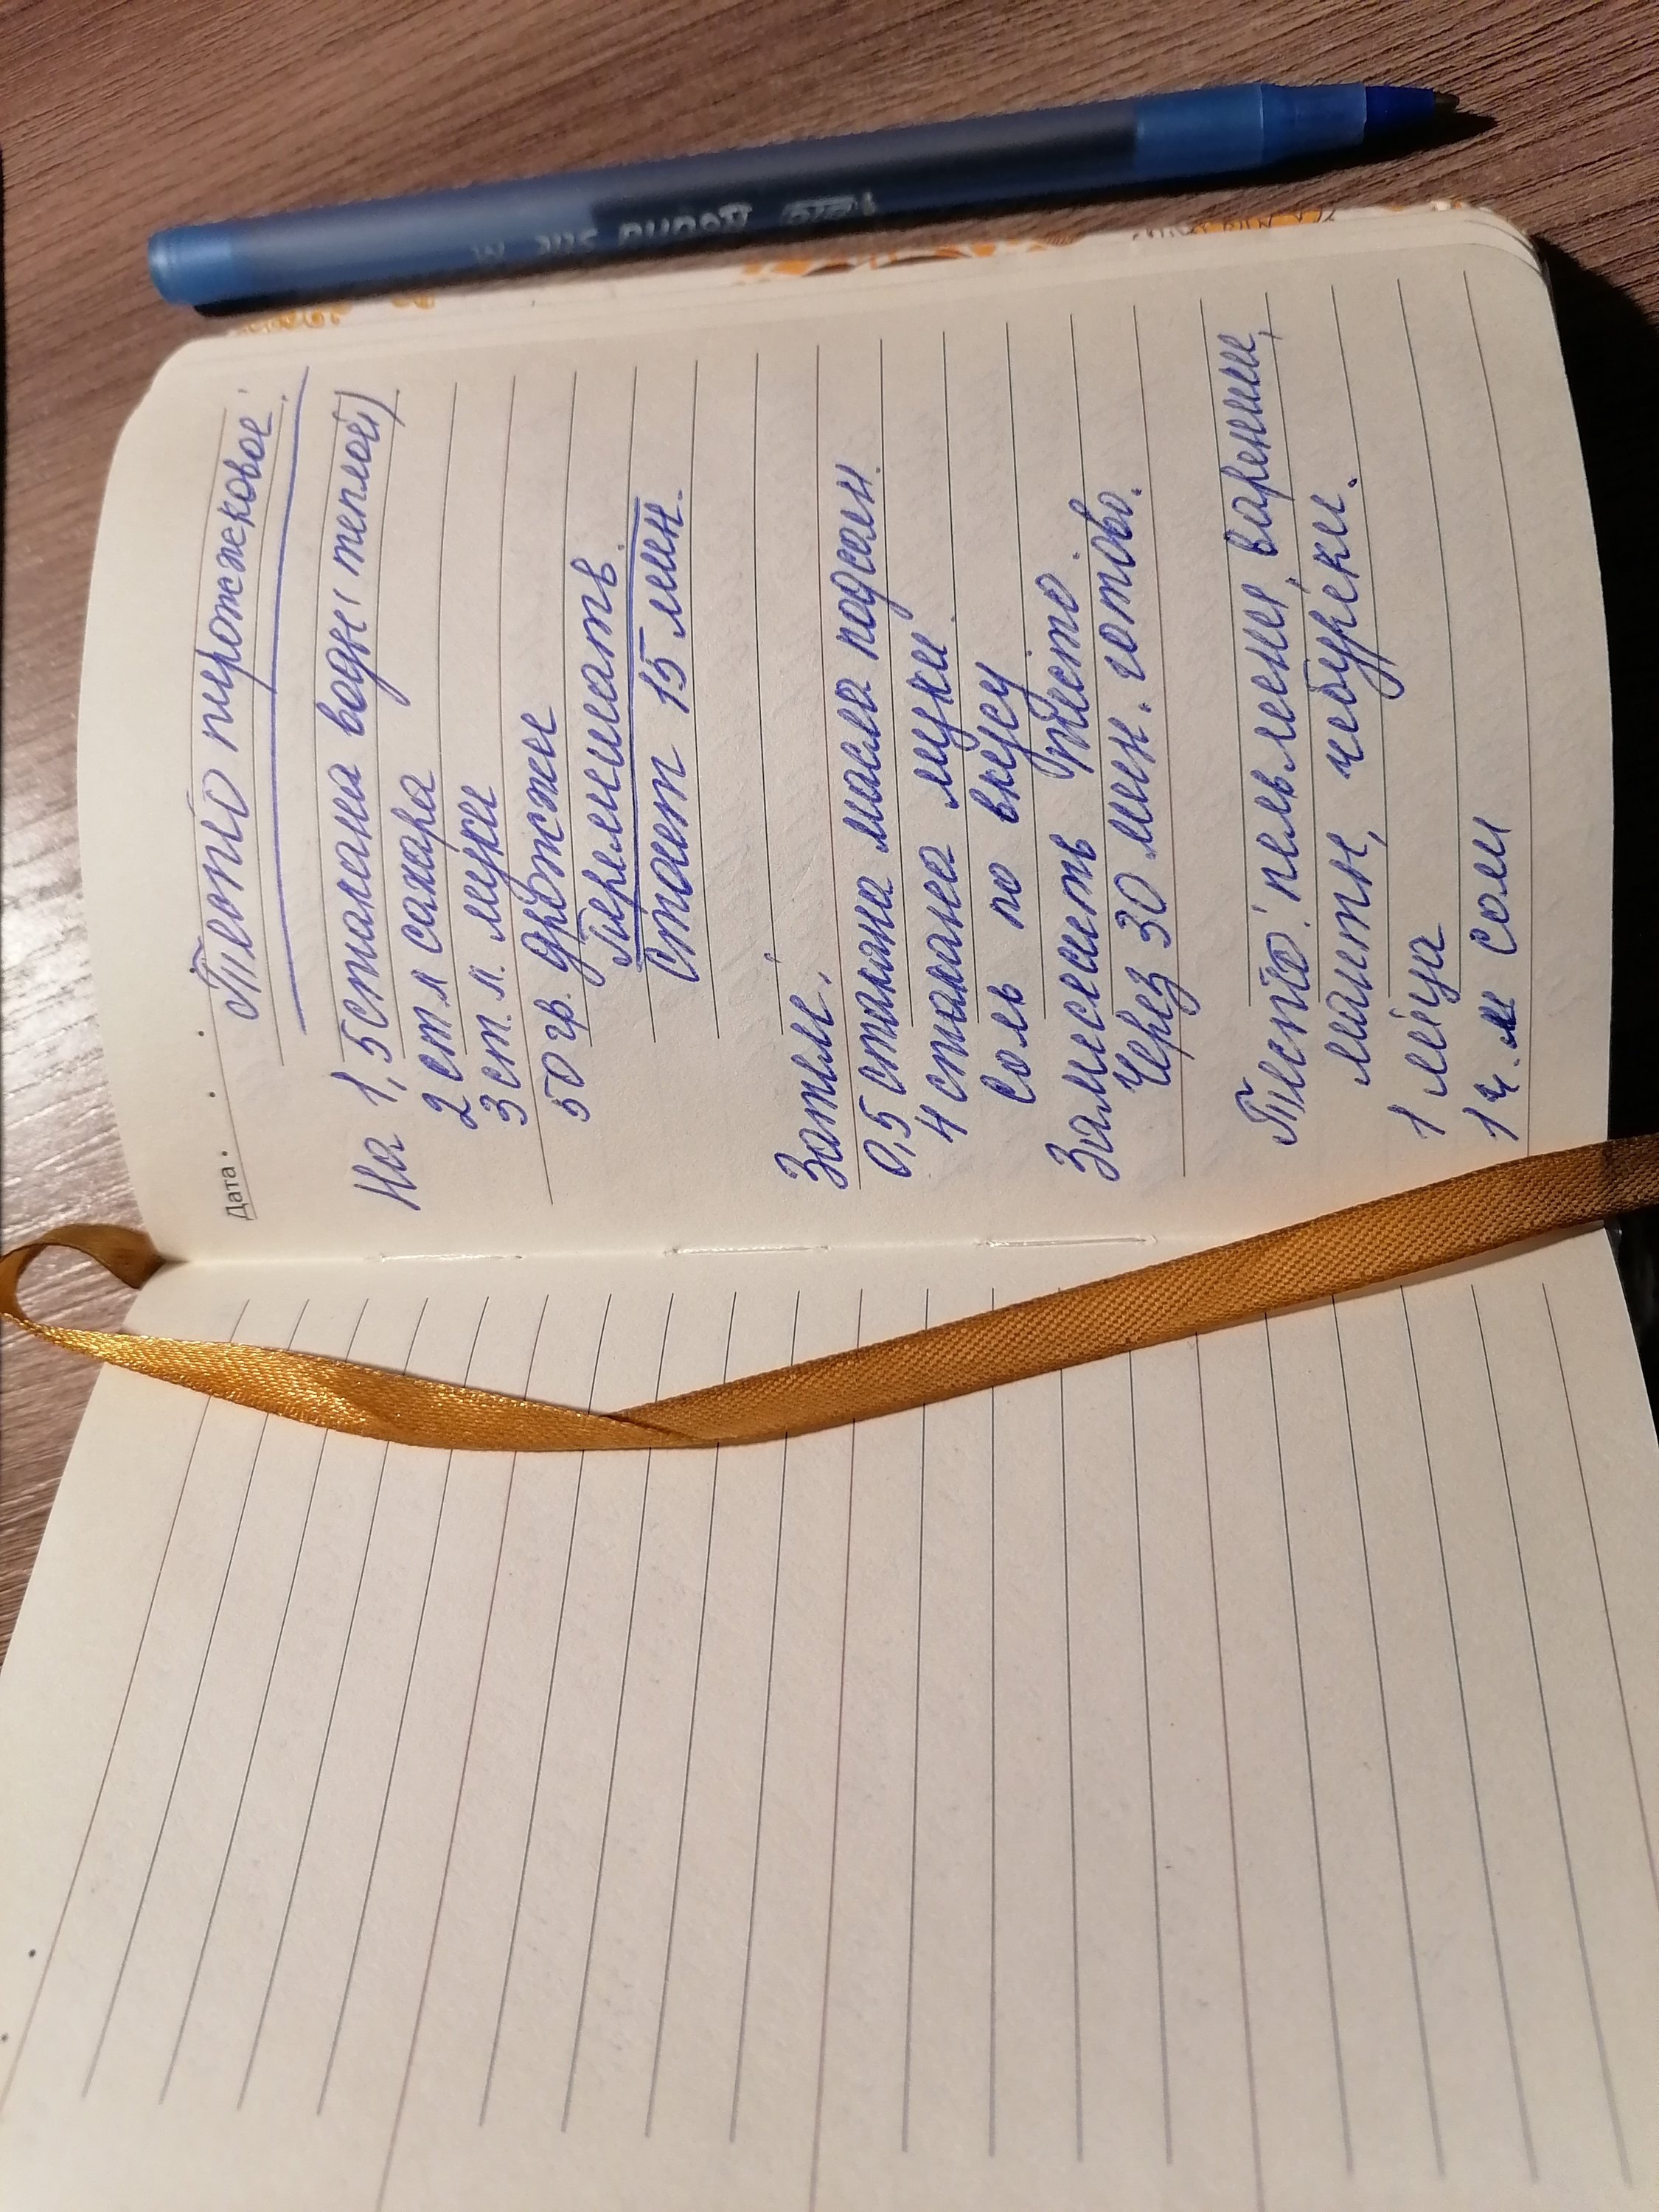 Дата
Тесто пирожковое!
На 1,5 стакана воды (теплой)
2 ст л сахара
3 ст. л. муки
50 гр. дрожжи
Перемешать.
Стоит 15 мин.
Затем:
0,5 стакана масла подсолн.
4 стакана муки.
Соль по вкусу
Замесить тесто.
Через 30 мин. готово.
Тесто: пельмени, вареники,
манты, чебуреки.
1 яйца
1 ч. л соли
Round Stic M